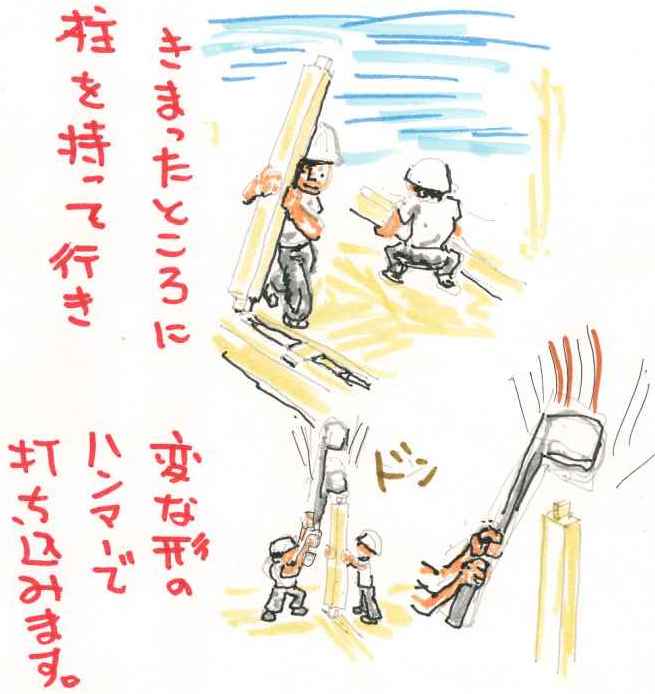 きまったところに
柱を持って行き
変な形の
ハンマーで
打ち込みます。
ドン